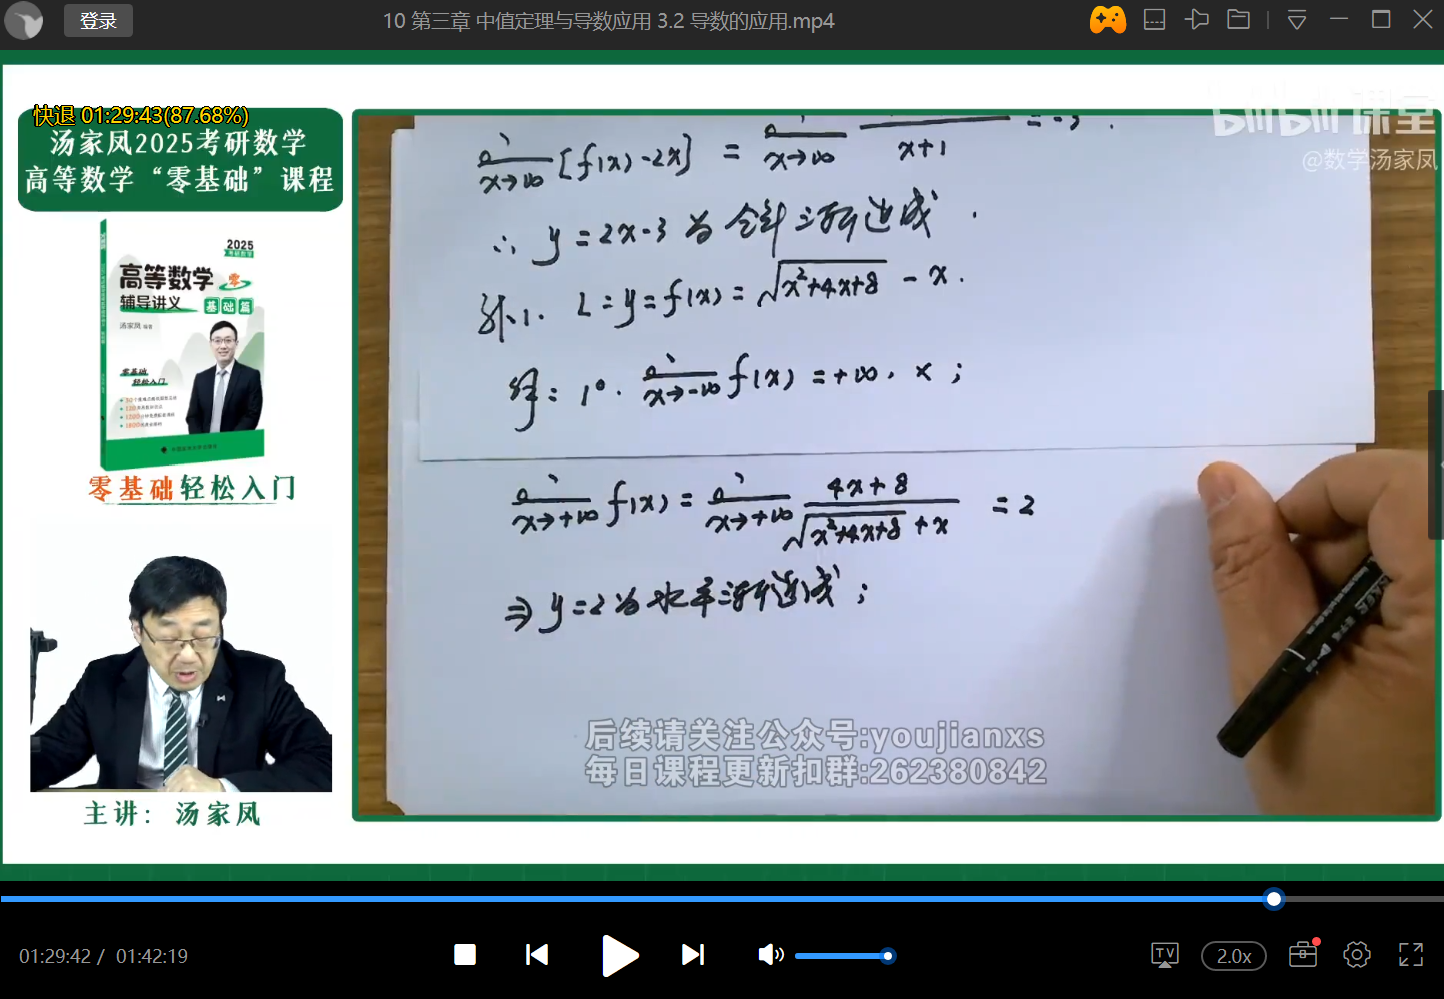 登录
10 第三章 中值定理与导数应用 3.2 导数的应用.mp4
快退 01:29:43(87.68%)
汤家凤2025考研数学
高等数学“零基础”课程
2025
高等数学
零
辅导讲义
基础篇
汤家凤
零基础
轻松入门
零基础轻松入门
主讲：汤家凤
bilibili课堂
@数学汤家凤
x→∞ [f(x)-2x] = x→∞ x+1 = -3.
∴ y=2x-3 为斜渐近线.
例1. L: y=f(x)=√x²+4x+8 - x.
解: 1°. x→-∞ f(x)=+∞, ×;
x→+∞ f(x) = x→+∞ 4x+8 / √x²+4x+8 + x = 2
⇒ y=2 为水平渐近线;
后续请关注公众号:youjianxs
每日课程更新扣群:262380842
01:29:42 / 01:42:19
TV
2.0x